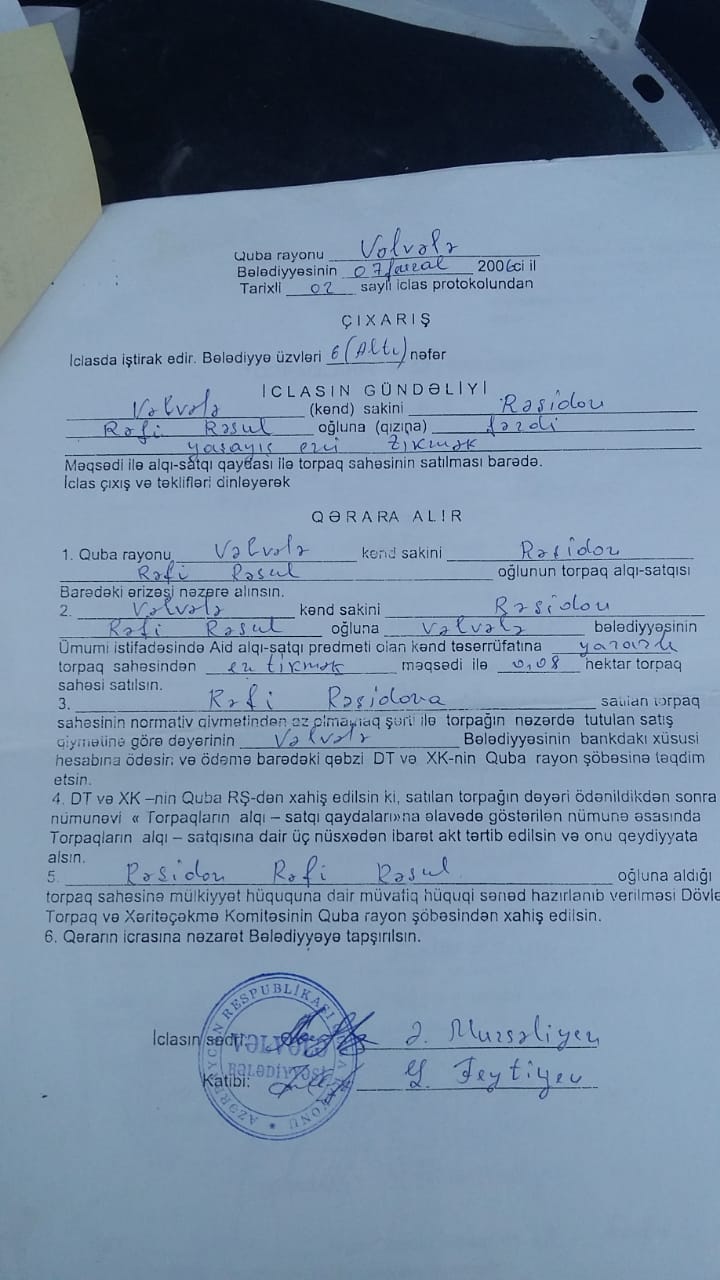 Quba rayonu Vəlvələ
Bələdiyyəsinin 07 fevral 2006ci il
Tarixli 02 saylı iclas protokolundan
ÇIXARIŞ
İclasda iştirak edir. Bələdiyyə üzvləri 6 (Altı) nəfər
İCLASIN GÜNDƏLİYİ
Vəlvələ (kənd) sakini Rəşidov
Rəfi Rəsul oğluna (qızına) fərdi
yaşayış evi tikmək
Məqsədi ilə alqı-satqı qaydası ilə torpaq sahəsinin satılması barədə.
İclas çıxış və təklifləri dinləyərək
QƏRARA ALIR
1. Quba rayonu Vəlvələ kənd sakini Rəşidov
Rəfi Rəsul oğlunun torpaq alqı-satqısı
Barədəki ərizəsi nəzərə alınsın.
2. Vəlvələ kənd sakini Rəşidov
Rəfi Rəsul oğluna Vəlvələ bələdiyyəsinin
Ümumi istifadəsində Aid alqı-satqı predmeti olan kənd təsərrüfatına yararlı
torpaq sahəsindən ev tikmək məqsədi ilə 0,08 hektar torpaq
sahəsi satılsın.
3. Rəfi Rəşidova satılan torpaq
sahəsinin normativ qiymətindən az olmamaq şərti ilə torpağın nəzərdə tutulan satış
qiymətinə görə dəyərinin Vəlvələ Bələdiyyəsinin bankdakı xüsusi
hesabına ödəsin və ödəmə barədəki qəbzi DT və XK-nin Quba rayon şöbəsinə təqdim
etsin.
4. DT və XK –nin Quba RŞ-dən xahiş edilsin ki, satılan torpağın dəyəri ödənildikdən sonra
nümunəvi « Torpaqların alqı – satqı qaydaları»na əlavədə göstərilən nümunə əsasında
Torpaqların alqı – satqısına dair üç nüsxədən ibarət akt tərtib edilsin və onu qeydiyyata
alsın.
5. Rəşidov Rəfi Rəsul oğluna aldığı
torpaq sahəsinə mülkiyyət hüququna dair müvafiq hüquqi sənəd hazırlanıb verilməsi Dövlə
Torpaq və Xəritəçəkmə Komitəsinin Quba rayon şöbəsindən xahiş edilsin.
6. Qərarın icrasına nəzarət Bələdiyyəyə tapşırılsın.
İclasın sədri: Ə. Mursəliyev
Katibi: Y. Feytiyev
AZƏRBAYCAN RESPUBLİKASI QUBA RAYONU
VƏLVƏLƏ
BƏLƏDİYYƏSİ